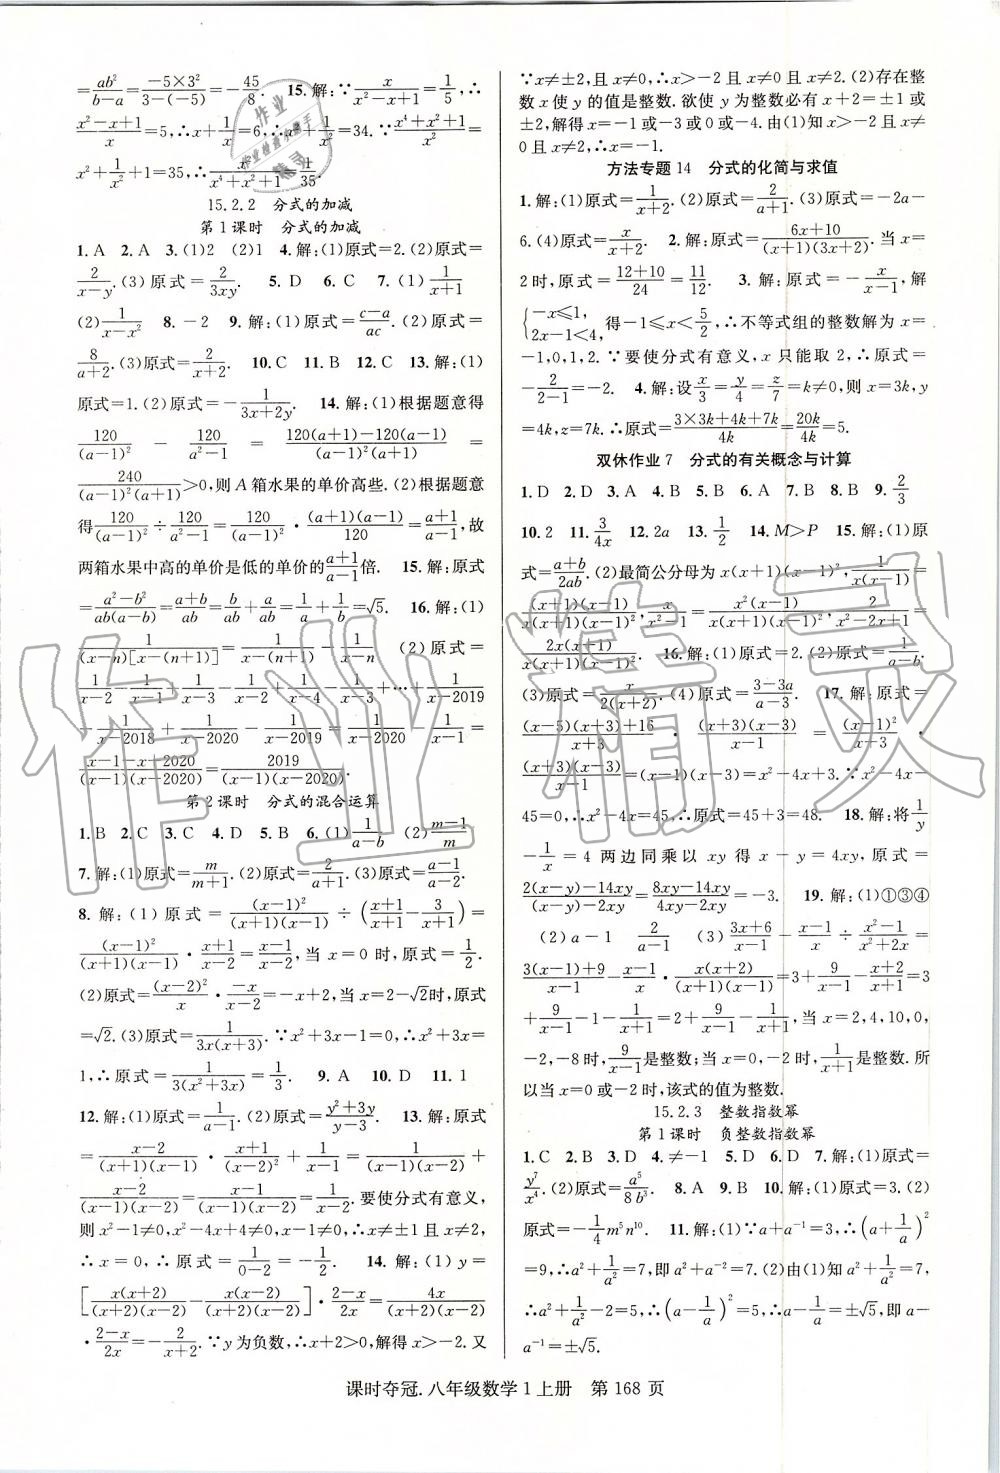 =ab²/(b-a)=(-5×3²)/(3-(-5))=-45/8. 15.解:∵x/(x²-x+1)=1/5,∴
(x²-x+1)/x=5,∴x+1/x=6,∴x²+1/x²=34.∵(x⁴+x²+1)/x²=
x²+1/x²+1=35,∴x²/(x⁴+x²+1)=1/35.
15.2.2 分式的加减
第1课时 分式的加减
1.A 2.A 3.(1)2 (2)1 4.解:(1)原式=2.(2)原式=
2/(x-y).(3)原式=2/(3xy). 5.D 6.C 7.(1)1/(x+1)
(2)1/(x-x²) 8.-2 9.解:(1)原式=(c-a)/(ac).(2)原式=
8/(a+2).(3)原式=2/(x+2). 10.C 11.B 12.C 13.解:(1)
原式=1.(2)原式=-1/(3x+2y). 14.解:(1)根据题意得
120/(a-1)² - 120/(a²-1) = (120(a+1)-120(a-1))/((a-1)²(a+1)) =
240/((a-1)²(a+1))>0,则A箱水果的单价高些.(2)根据题意
得120/(a-1)²÷120/(a²-1)=120/(a-1)²·((a+1)(a-1))/120=(a+1)/(a-1),故
两箱水果中高的单价是低的单价的(a+1)/(a-1)倍. 15.解:原式
=(a²-b²)/(ab(a-b))=(a+b)/(ab)=b/(ab)+a/(ab)=1/a+1/b=√5. 16.解:(1)
1/((x-n)[x-(n+1)])=1/(x-(n+1))-1/(x-n) (2)原式=
1/(x-2)-1/(x-1)+1/(x-3)-1/(x-2)+1/(x-4)-1/(x-3)+…+1/(x-2019)
-1/(x-2018)+1/(x-2020)-1/(x-2019)=1/(x-2020)-1/(x-1)=
(x-1-x+2020)/((x-1)(x-2020))=2019/((x-1)(x-2020)).
第2课时 分式的混合运算
1.B 2.C 3.C 4.D 5.B 6.(1)1/(a-b) (2)(m-1)/m
7.解:(1)原式=m/(m+1).(2)原式=2/(a+1).(3)原式=(a-1)/(a-2).
8.解:(1)原式=(x-1)²/((x+1)(x-1))÷((x+1)/(x+1)-3/(x+1))=
(x-1)²/((x+1)(x-1))·(x+1)/(x-2)=(x-1)/(x-2),当x=0时,原式=1/2.
(2)原式=(x-2)²/x·(-x)/(x-2)=-x+2,当x=2-√2时,原式
=√2.(3)原式=1/(3x(x+3)).∵x²+3x-1=0,∴x²+3x=
1,∴原式=1/(3(x²+3x))=1/3. 9.A 10.D 11.1
12.解:(1)原式=1/(a-1).(2)原式=(y²+3y)/(y-3). 13.解:原式
=(x-2)/((x+1)(x-1))·(x+1)/(x-2)²+1/(x-1)=1/((x-1)(x-2))+
(x-2)/((x-1)(x-2))=(x-1)/((x-1)(x-2))=1/(x-2).要使分式有意义,
则x²-1≠0,x²-4x+4≠0,x-1≠0,∴x≠±1且x≠2,
∴x=0,∴原式=1/(0-2)=-1/2. 14.解:(1)y=
[x(x+2)/((x+2)(x-2))-x(x-2)/((x+2)(x-2))]·(2-x)/(2x)=4x/((x+2)(x-2))
·(2-x)/(2x)=-2/(x+2).∵y为负数,∴x+2>0,解得x>-2.又
∵x≠±2,且x≠0,∴x>-2且x≠0且x≠2.(2)存在整
数x使y的值是整数.欲使y为整数必有x+2=±1或
±2,解得x=-1或-3或0或-4.由(1)知x>-2且x≠
0且x≠2,∴x=-1.
方法专题14 分式的化简与求值
1.解:(1)原式=1/(x+2).(2)原式=2/(a+1).(3)原式=-2a-
6.(4)原式=x/(x+2). 2.解:原式=(6x+10)/((x+1)(3x+2)).当x=
2时,原式=(12+10)/24=11/12. 3.解:原式=-x/(x-1),解
{-x≤1,2x-1<4,得-1≤x<5/2,∴不等式组的整数解为x=
-1,0,1,2.∵要使分式有意义,x只能取2,∴原式=
-2/(2-1)=-2. 4.解:设x/3=y/4=z/7=k≠0,则x=3k,y
=4k,z=7k.∴原式=(3×3k+4k+7k)/(4k)=20k/(4k)=5.
双休作业7 分式的有关概念与计算
1.D 2.D 3.A 4.B 5.B 6.A 7.B 8.B 9.2/3
10.2 11.3/(4x) 12.2a 13.1/2 14.M>P 15.解:(1)原
式=(a+b)/(2ab).(2)最简公分母为x(x+1)(x-1)²,1/(x(x-1))=
(x+1)(x-1)/(x(x+1)(x-1)²),x/(x²-1)=x²(x-1)/(x(x+1)(x-1)²),2/(x²-2x+1)=
2x(x+1)/(x(x+1)(x-1)²). 16.解:(1)原式=2.(2)原式=1/(a-b).
(3)原式=x/(2(x+2)).(4)原式=(3-3a)/(a-3). 17.解:原式=
((x-5)(x+3)+16)/(x+3)·((x+3)(x-3))/(x-1)=(x-1)²/(x+3)·
((x+3)(x-3))/(x-1)=(x-1)(x-3)=x²-4x+3.∵x²-4x-
45=0,∴x²-4x=45,∴原式=45+3=48. 18.解:将1/y
-1/x=4两边同乘以xy得x-y=4xy,原式=
(2(x-y)-14xy)/((x-y)-2xy)=(8xy-14xy)/(4xy-2xy)=-3. 19.解:(1)①③④
(2)a-1 2/(a-1) (3)(3x+6)/(x-1)-(x-1)/x÷(x²-1)/(x²+2x)=
(3(x-1)+9)/(x-1)-(x-1)/x·x(x+2)/((x+1)(x-1))=3+9/(x-1)-(x+2)/(x+1)=3
+9/(x-1)-1-1/(x+1)=2+9/(x-1)-1/(x+1),当x=2,4,10,0,
-2,-8时,9/(x-1)是整数;当x=0,-2时,1/(x+1)是整数.所
以当x=0或-2时,该式的值为整数.
15.2.3 整数指数幂
第1课时 负整数指数幂
1.C 2.B 3.D 4.≠-1 5.D 6.D 7.解:(1)原式=
y⁷/x⁴.(2)原式=a⁵/(8b³). 8.A 9.D 10.解:(1)原式=3.(2)
原式=-1/4m⁵n¹⁰. 11.解:(1)∵a+a⁻¹=3,∴(a+1/a)²
=9,∴a²+1/a²=7,即a²+a⁻²=7.(2)由(1)知a²+1/a²=7,
∴a²+1/a²-2=5,∴(a-1/a)²=5,∴a-1/a=±√5,即a-
a⁻¹=±√5.
课时夺冠.八年级数学1上册 第168页
作业精灵